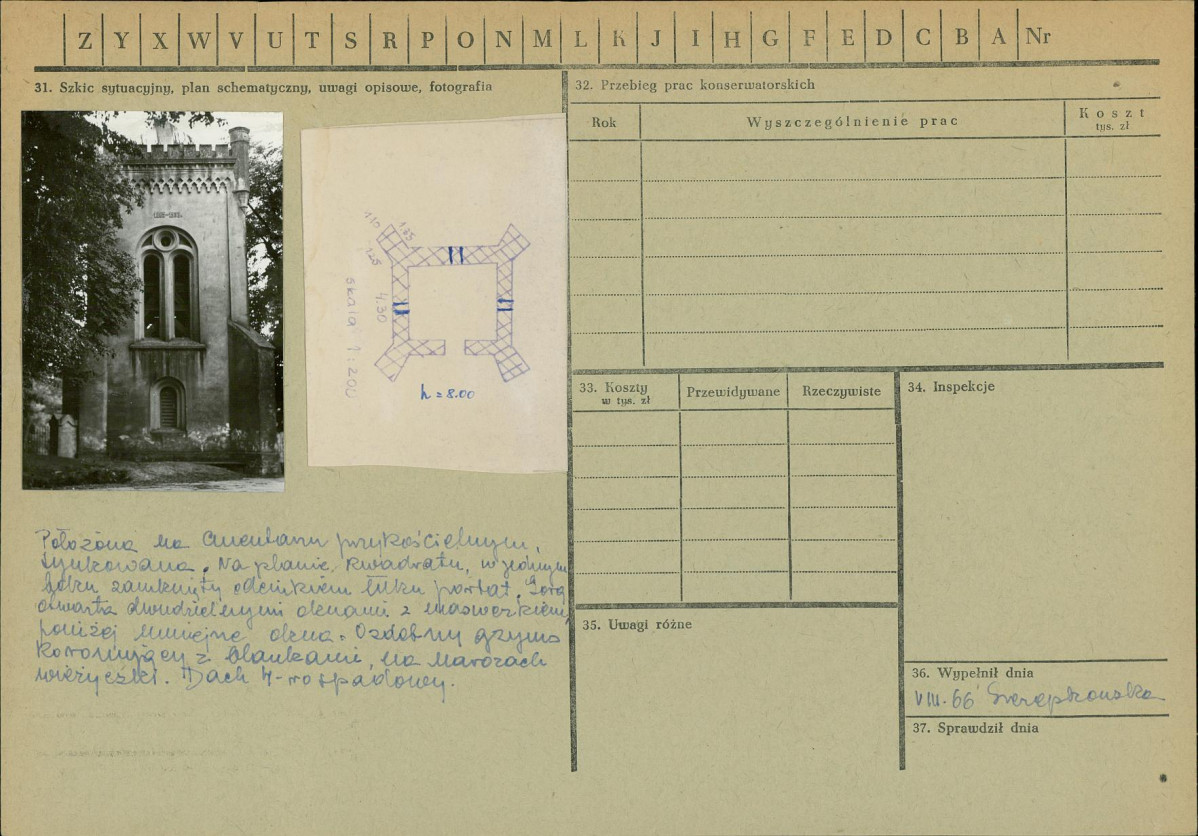 Z Y X W V U T S R P O N M L K J I H G F E D C B A Nr
31. Szkic sytuacyjny, plan schematyczny, uwagi opisowe, fotografia
110
175
125
4.30
skala 1:200
h = 8.00
Położona na cmentarzu przykościelnym,
tynkowana. Na planie kwadratu, w jednym
boku zamknięty odcinkiem łuku portal. Górą
otwarta dwudzielnymi oknami z maswerkiem,
poniżej mniejsze okna. Ozdobny gzyms
koronujący z blankami, na narożach
wieżyczki. Dach 4-rospadowy.
32. Przebieg prac konserwatorskich
Rok
Wyszczególnienie prac
Koszt
tys. zł
33. Koszty
w tys. zł
Przewidywane
Rzeczywiste
34. Inspekcje
35. Uwagi różne
36. Wypełnił dnia
VIII. 66
37. Sprawdził dnia